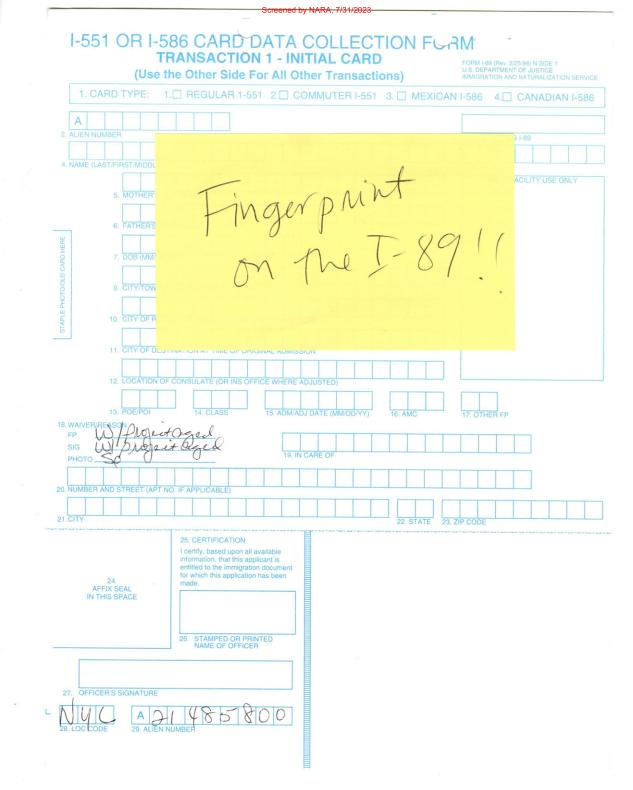 Screened by NARA, 7/31/2023
I-551 OR I-586 CARD DATA COLLECTION FORM
TRANSACTION 1 - INITIAL CARD
(Use the Other Side For All Other Transactions)
FORM I-89 (Rev. 2/25/98) N SIDE 1
U.S. DEPARTMENT OF JUSTICE
IMMIGRATION AND NATURALIZATION SERVICE
1. CARD TYPE: 1. REGULAR 1-551 2. COMMUTER I-551 3. MEXICAN I-586 4. CANADIAN I-586
A
2. ALIEN NUMBER
I-89
4. NAME (LAST/FIRST/MIDDL
ACILITY USE ONLY
5. MOTHER'
6. FATHER'S
7. DOB (MM
9. CITY/TOW
10. CITY OF R
Fingerprint
on the I-89!!
STAPLE PHOTO/OLD CARD HERE
11. CITY OF DESTINATION AT TIME OF ORIGINAL ADMISSION
12. LOCATION OF CONSULATE (OR INS OFFICE WHERE ADJUSTED)
13. POE/POI 14. CLASS 15. ADM/ADJ DATE (MM/DD/YY) 16. AMC 17. OTHER FP
18. WAIVER/REASON
FP W/Project aged
SIG W/project aged
PHOTO
19. IN CARE OF
20. NUMBER AND STREET (APT NO. IF APPLICABLE)
21. CITY 22. STATE 23. ZIP CODE
24.
AFFIX SEAL
IN THIS SPACE
25. CERTIFICATION
I certify, based upon all available
information, that this applicant is
entitled to the immigration document
for which this application has been
made.
26. STAMPED OR PRINTED
NAME OF OFFICER
27. OFFICER'S SIGNATURE
L NYC A 21 485 800
28. LOC CODE 29. ALIEN NUMBER